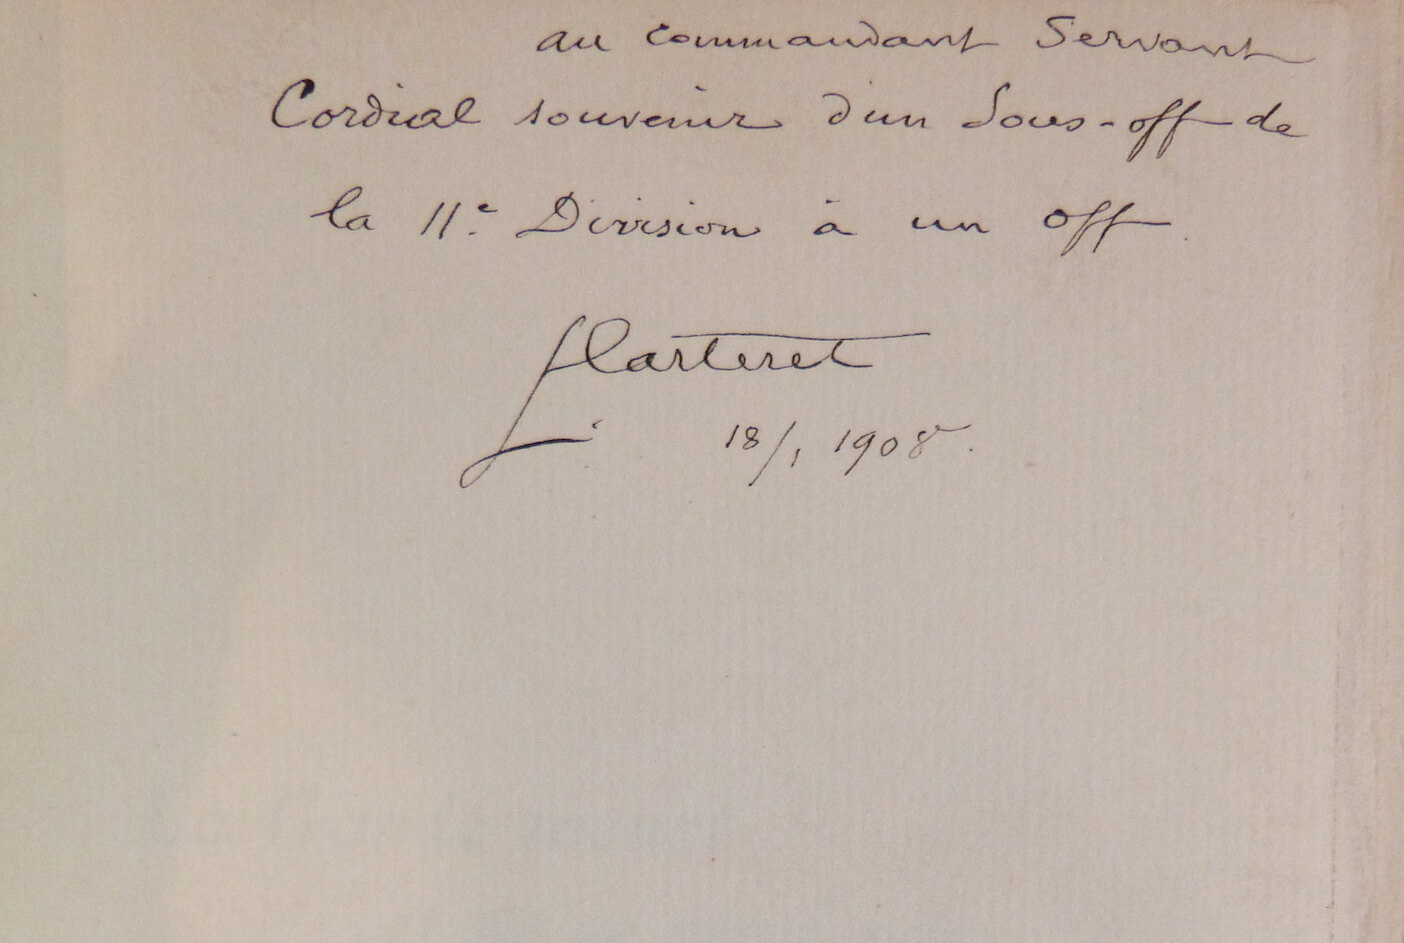 au commandant Servant
Cordial souvenir d'un Sous-off de
la 11e Division à un off.
LCarteret
18/1 1908.